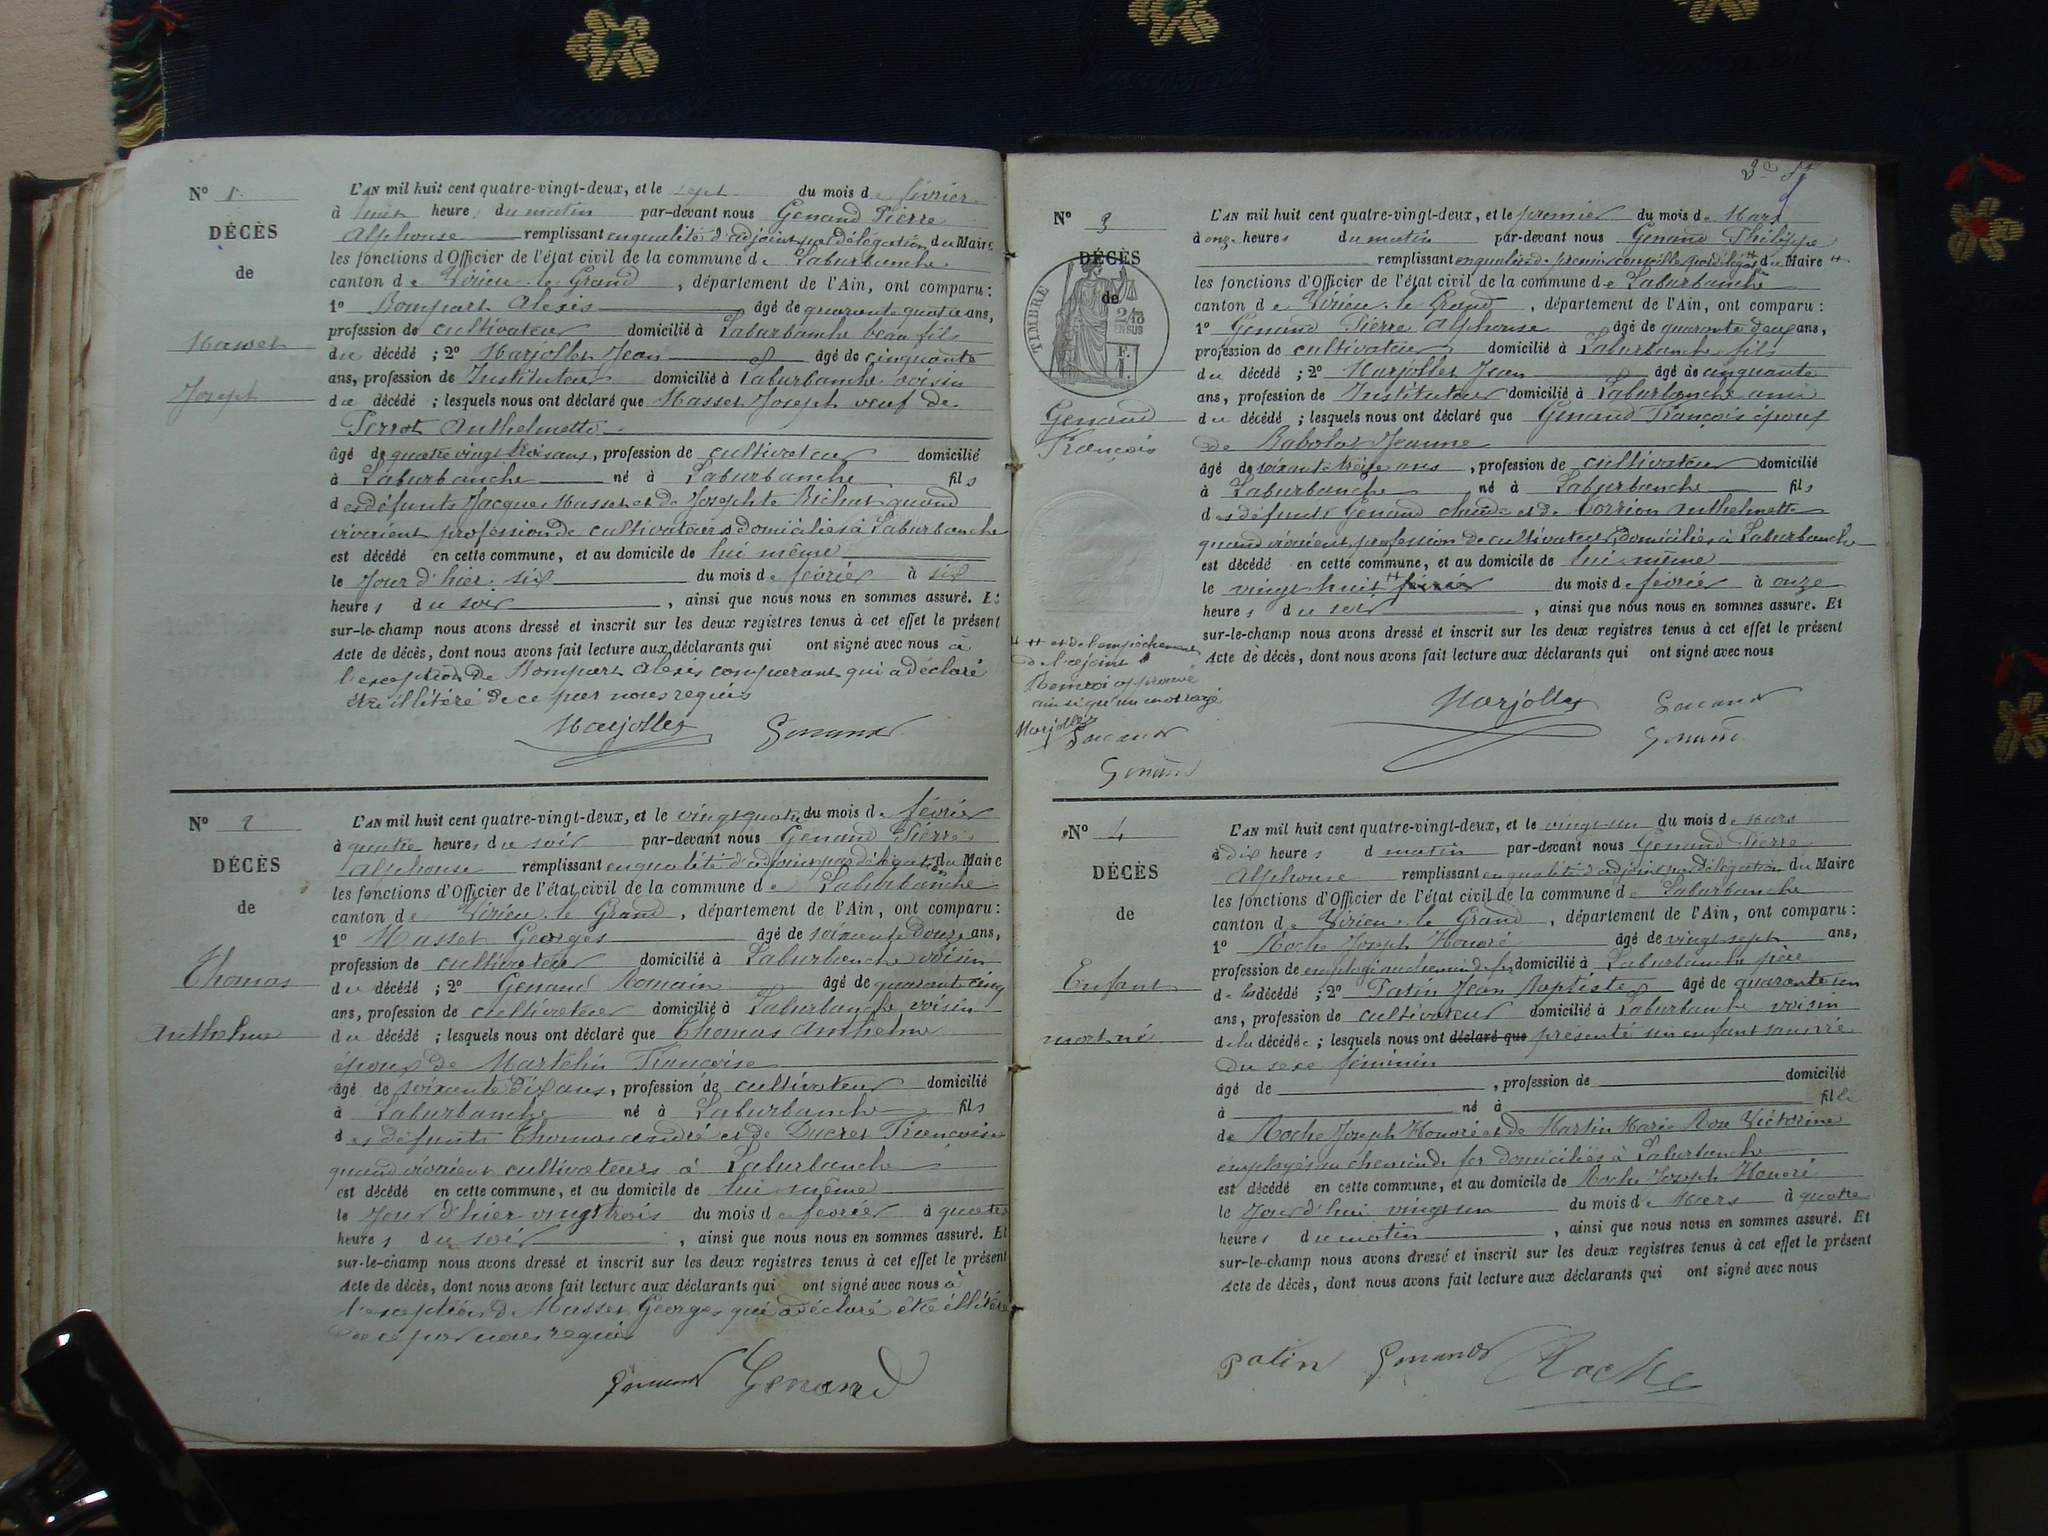 N° 1
DÉCÈS
de
Masset
Joseph
L'AN mil huit cent quatre-vingt-deux, et le sept du mois de février
à heures du matin par-devant nous Genand Pierre
Alphonse remplissant en qualité d'adjoint par délégation du Maire
les fonctions d'Officier de l'état civil de la commune de Laburbanche
canton de Virieu le Grand, département de l'Ain, ont comparu :
1° Bompart Alexis âgé de quarante quatre ans,
profession de cultivateur domicilié à Laburbanche beau fils
du décédé ; 2° Marjollet Jean âgé de cinquante
ans, profession de Instituteur domicilié à Laburbanche voisin
du décédé ; lesquels nous ont déclaré que Masset Joseph veuf de
Perrot Anthelmette
âgé de quatre vingt trois ans, profession de cultivateur domicilié
à Laburbanche né à Laburbanche fils
des défunts Jacques Masset et de Josephte Richat quand
vivaient profession de cultivateurs domiciliés à Laburbanche
est décédé en cette commune, et au domicile de lui même
le jour d'hier six du mois de février à six
heures du soir, ainsi que nous nous en sommes assuré. Et
sur-le-champ nous avons dressé et inscrit sur les deux registres tenus à cet effet le présent
Acte de décès, dont nous avons fait lecture aux déclarants qui ont signé avec nous à
l'exception de Bompart Alexis comparant qui a déclaré
être illitéré de ce par nous requis
Marjollet Genand
N° 2
DÉCÈS
de
Thomas
Anthelme
L'AN mil huit cent quatre-vingt-deux, et le vingt quatre du mois de février
à quatre heures du soir par-devant nous Genand Pierre
Alphonse remplissant en qualité d'adjoint par délégation du Maire
les fonctions d'Officier de l'état civil de la commune de Laburbanche
canton de Virieu le Grand, département de l'Ain, ont comparu :
1° Masset Georges âgé de soixante douze ans,
profession de cultivateur domicilié à Laburbanche voisin
du décédé ; 2° Genand Romain âgé de quarante cinq
ans, profession de cultivateur domicilié à Laburbanche voisin
du décédé ; lesquels nous ont déclaré que Thomas Anthelme
époux de Martelin Françoise
âgé de soixante dix ans, profession de cultivateur domicilié
à Laburbanche né à Laburbanche fils
des défunts Thomas andré et de Ducret Françoise
quand vivaient cultivateurs à Laburbanche
est décédé en cette commune, et au domicile de lui même
le jour d'hier vingt trois du mois de février à quatre
heures du soir, ainsi que nous nous en sommes assuré. Et
sur-le-champ nous avons dressé et inscrit sur les deux registres tenus à cet effet le présent
Acte de décès, dont nous avons fait lecture aux déclarants qui ont signé avec nous à
l'exception de Masset Georges qui a déclaré être illitéré
de ce par nous requis
Genand Genand
N° 3
DÉCÈS
de
TIMBRE
2/10
EN SUS
F.
1.
Genand
François
et de l'empêchement
de l'adjoint
Renvoi approuvé
ainsi qu'un mot rayé
Marjollet
Genand
Genand
L'AN mil huit cent quatre-vingt-deux, et le premier du mois de Mars
à onze heures du matin par-devant nous Genand Philippe
remplissant en qualité de premier conseiller par délégation du Maire
les fonctions d'Officier de l'état civil de la commune de Laburbanche
canton de Virieu le Grand, département de l'Ain, ont comparu :
1° Genand Pierre Alphonse âgé de quarante deux ans,
profession de cultivateur domicilié à Laburbanche fils
du décédé ; 2° Marjollet Jean âgé de cinquante
ans, profession de Instituteur domicilié à Laburbanche ami
du décédé ; lesquels nous ont déclaré que Genand François époux
de Jeanne
âgé de soixante treize ans, profession de cultivateur domicilié
à Laburbanche né à Laburbanche fils
des défunts Genand Claude et de Anthelmette
quand vivaient profession de cultivateurs domiciliés à Laburbanche
est décédé en cette commune, et au domicile de lui même
le vingt huit février du mois de février à onze
heures du soir, ainsi que nous nous en sommes assuré. Et
sur-le-champ nous avons dressé et inscrit sur les deux registres tenus à cet effet le présent
Acte de décès, dont nous avons fait lecture aux déclarants qui ont signé avec nous
Marjollet Genand
Genand
N° 4
DÉCÈS
de
Enfant
mort né
L'AN mil huit cent quatre-vingt-deux, et le vingt un du mois de Mars
à dix heures d matin par-devant nous Genand Pierre
Alphonse remplissant en qualité d'adjoint par délégation du Maire
les fonctions d'Officier de l'état civil de la commune de Laburbanche
canton de Virieu le Grand, département de l'Ain, ont comparu :
1° Roche Joseph Honoré âgé de vingt sept ans,
profession de employé au chemin de fer domicilié à Laburbanche père
de la décédé ; 2° Patin Jean Baptiste âgé de quarante un
ans, profession de cultivateur domicilié à Laburbanche voisin
de la décédée ; lesquels nous ont déclaré que présenté un enfant sans vie
du sexe féminin
âgé de , profession de domicilié
à né à fille
de Roche Joseph Honoré et de Martin Marie Rose Victorine
employés au chemin de fer domiciliés à Laburbanche
est décédé en cette commune, et au domicile de Roche Joseph Honoré
le jour d'hui vingt un du mois de Mars à quatre
heures du matin, ainsi que nous nous en sommes assuré. Et
sur-le-champ nous avons dressé et inscrit sur les deux registres tenus à cet effet le présent
Acte de décès, dont nous avons fait lecture aux déclarants qui ont signé avec nous
Patin Genand Roche